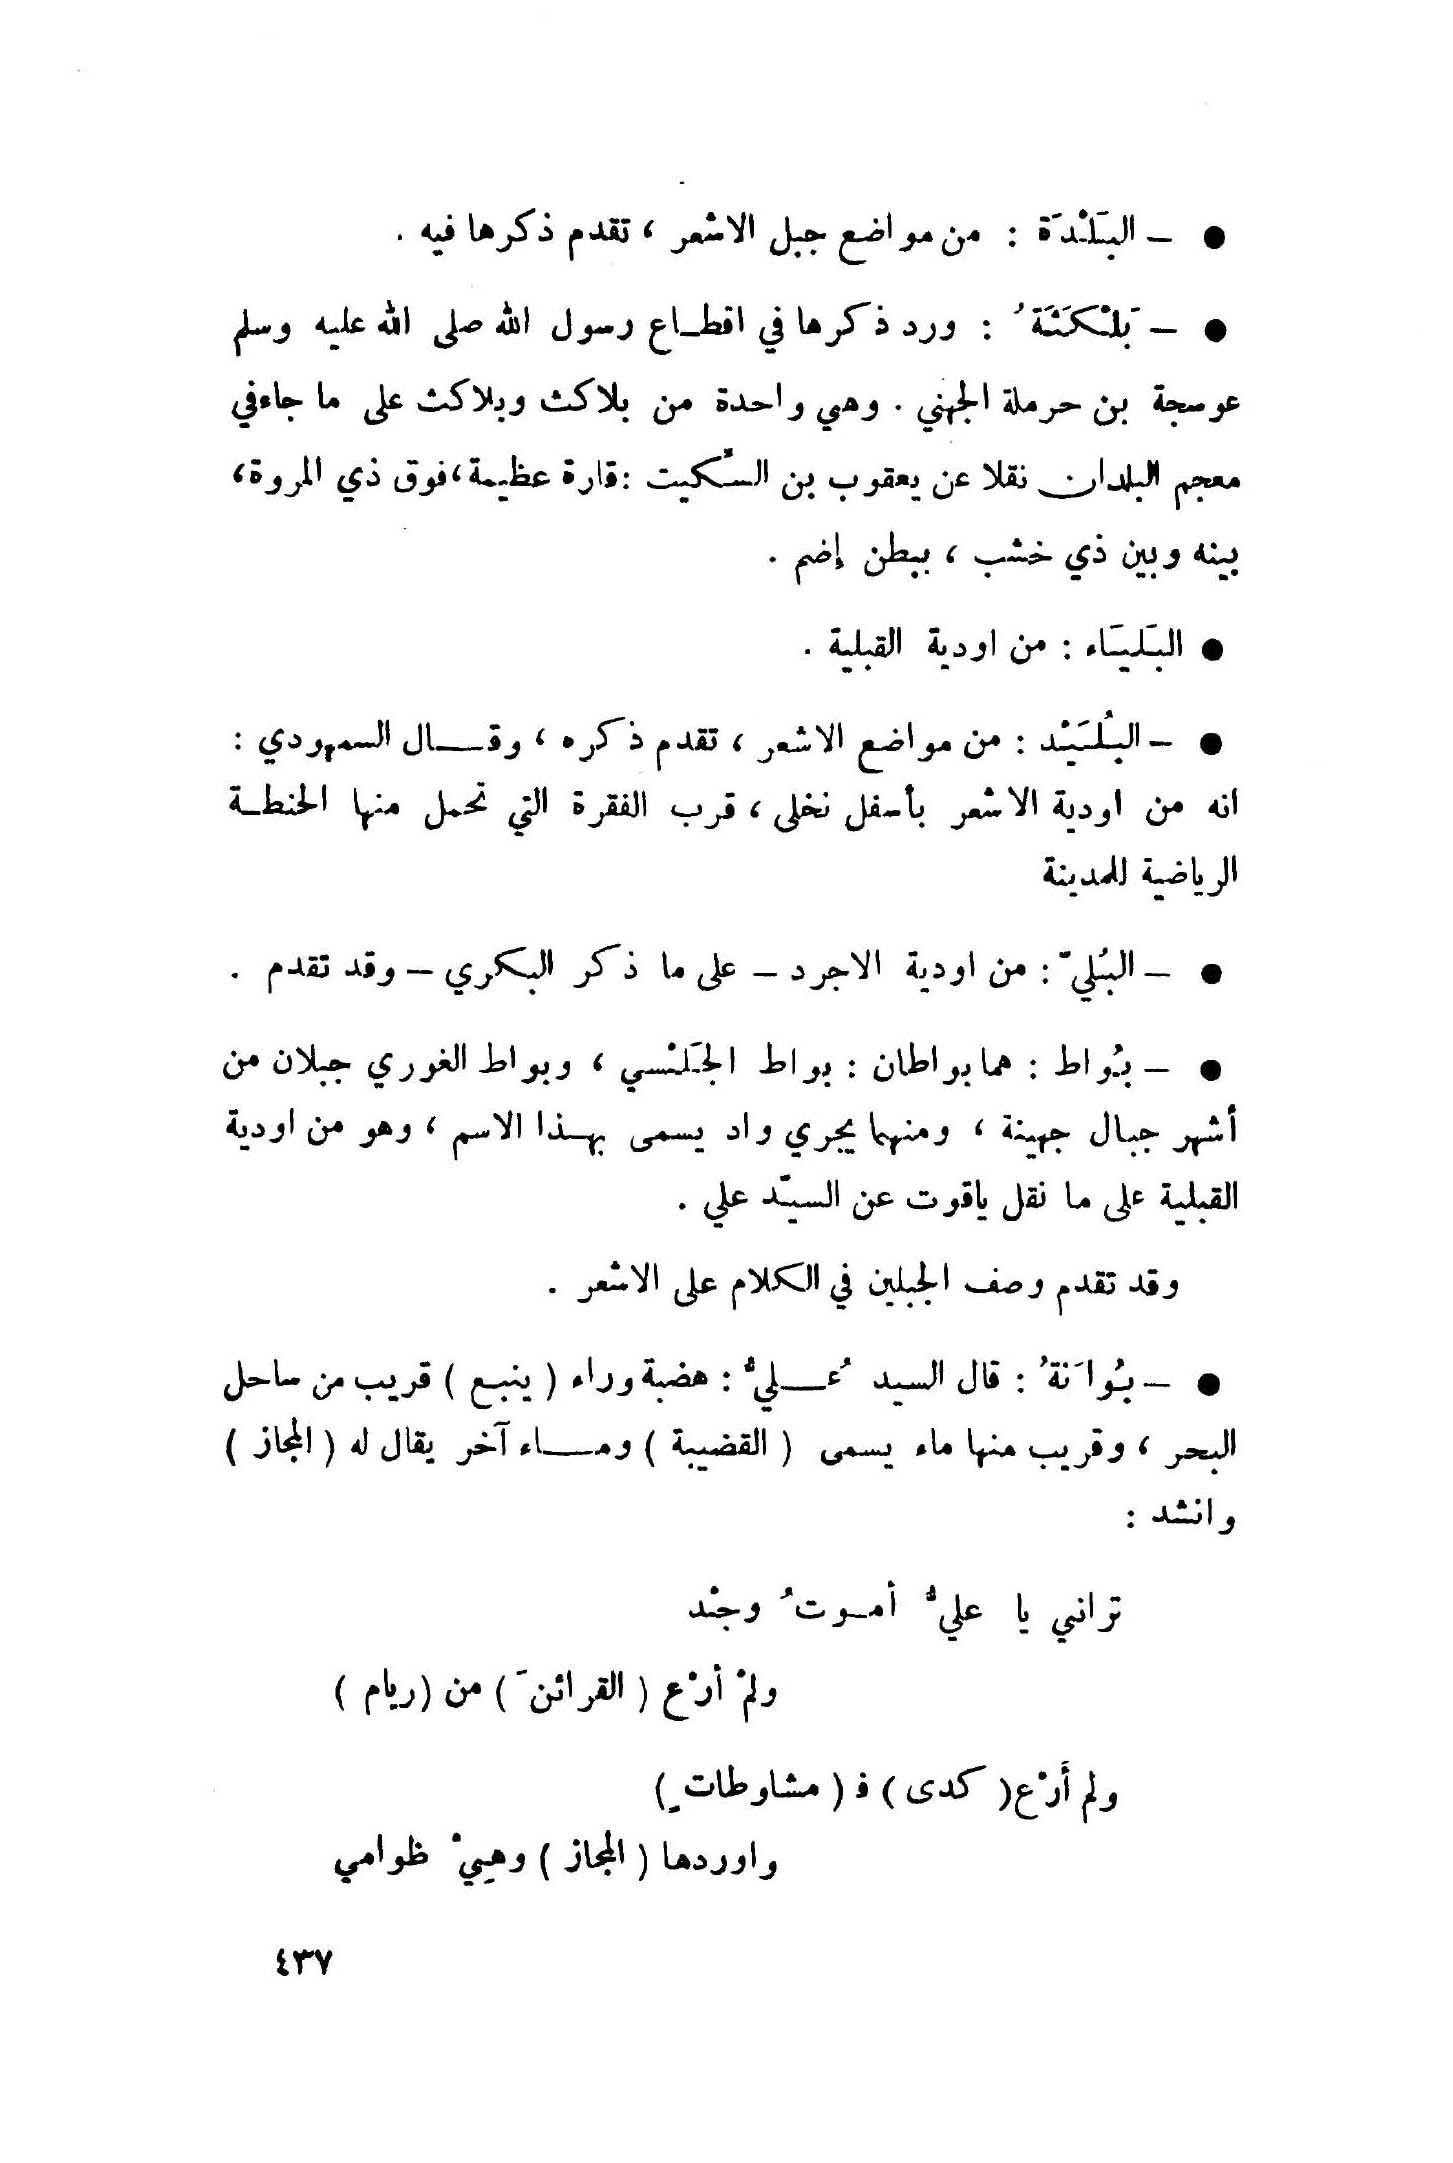 ● – البَلْدَة : من مواضع جبل الاشعر ، تقدم ذكرها فيه .
● – بَلْكَثَةُ : ورد ذكرها في اقطاع رسول الله صلى الله عليه وسلم
عوسجة بن حرملة الجهني . وهي واحدة من بلاكث وبلاكث على ما جاء في
معجم البلدان نقلا عن يعقوب بن السكيت : قارة عظيمة ، فوق ذي المروة ،
بينه وبين ذي خشب ، ببطن إضم .
● البَليَاء : من اودية القبلية .
● – البُلَيْد : من مواضع الاشعر ، تقدم ذكره ، وقال السمهودي :
انه من اودية الاشعر بأسفل نخلى ، قرب الفقرة التي تحمل منها الحنطة
الرياضية للمدينة
● – البُليّ : من اودية الاجرد – على ما ذكر البكري – وقد تقدم .
● – بُواط : هما بواطان : بواط الجَلْسي ، وبواط الغوري جبلان من
أشهر جبال جهينة ، ومنهما يجري واد يسمى بهذا الاسم ، وهو من اودية
القبلية على ما نقل ياقوت عن السيّد علي .
وقد تقدم وصف الجبلين في الكلام على الاشعر .
● – بُوَانَةُ : قال السيد عُليٌّ : هضبة وراء ( ينبع ) قريب من ساحل
البحر ، وقريب منها ماء يسمى ( القضيبة ) وماء آخر يقال له ( المجاز )
وانشد :
تراني يا عليُّ أموتُ وجْد
ولمْ أرْع ( القرائنَ ) من ( ريام )
ولم أَرْع ( كدى ) فـ ( مشاوطاتٍ )
واوردها ( المجاز ) وهِيْ ظوامي
٤٣٧